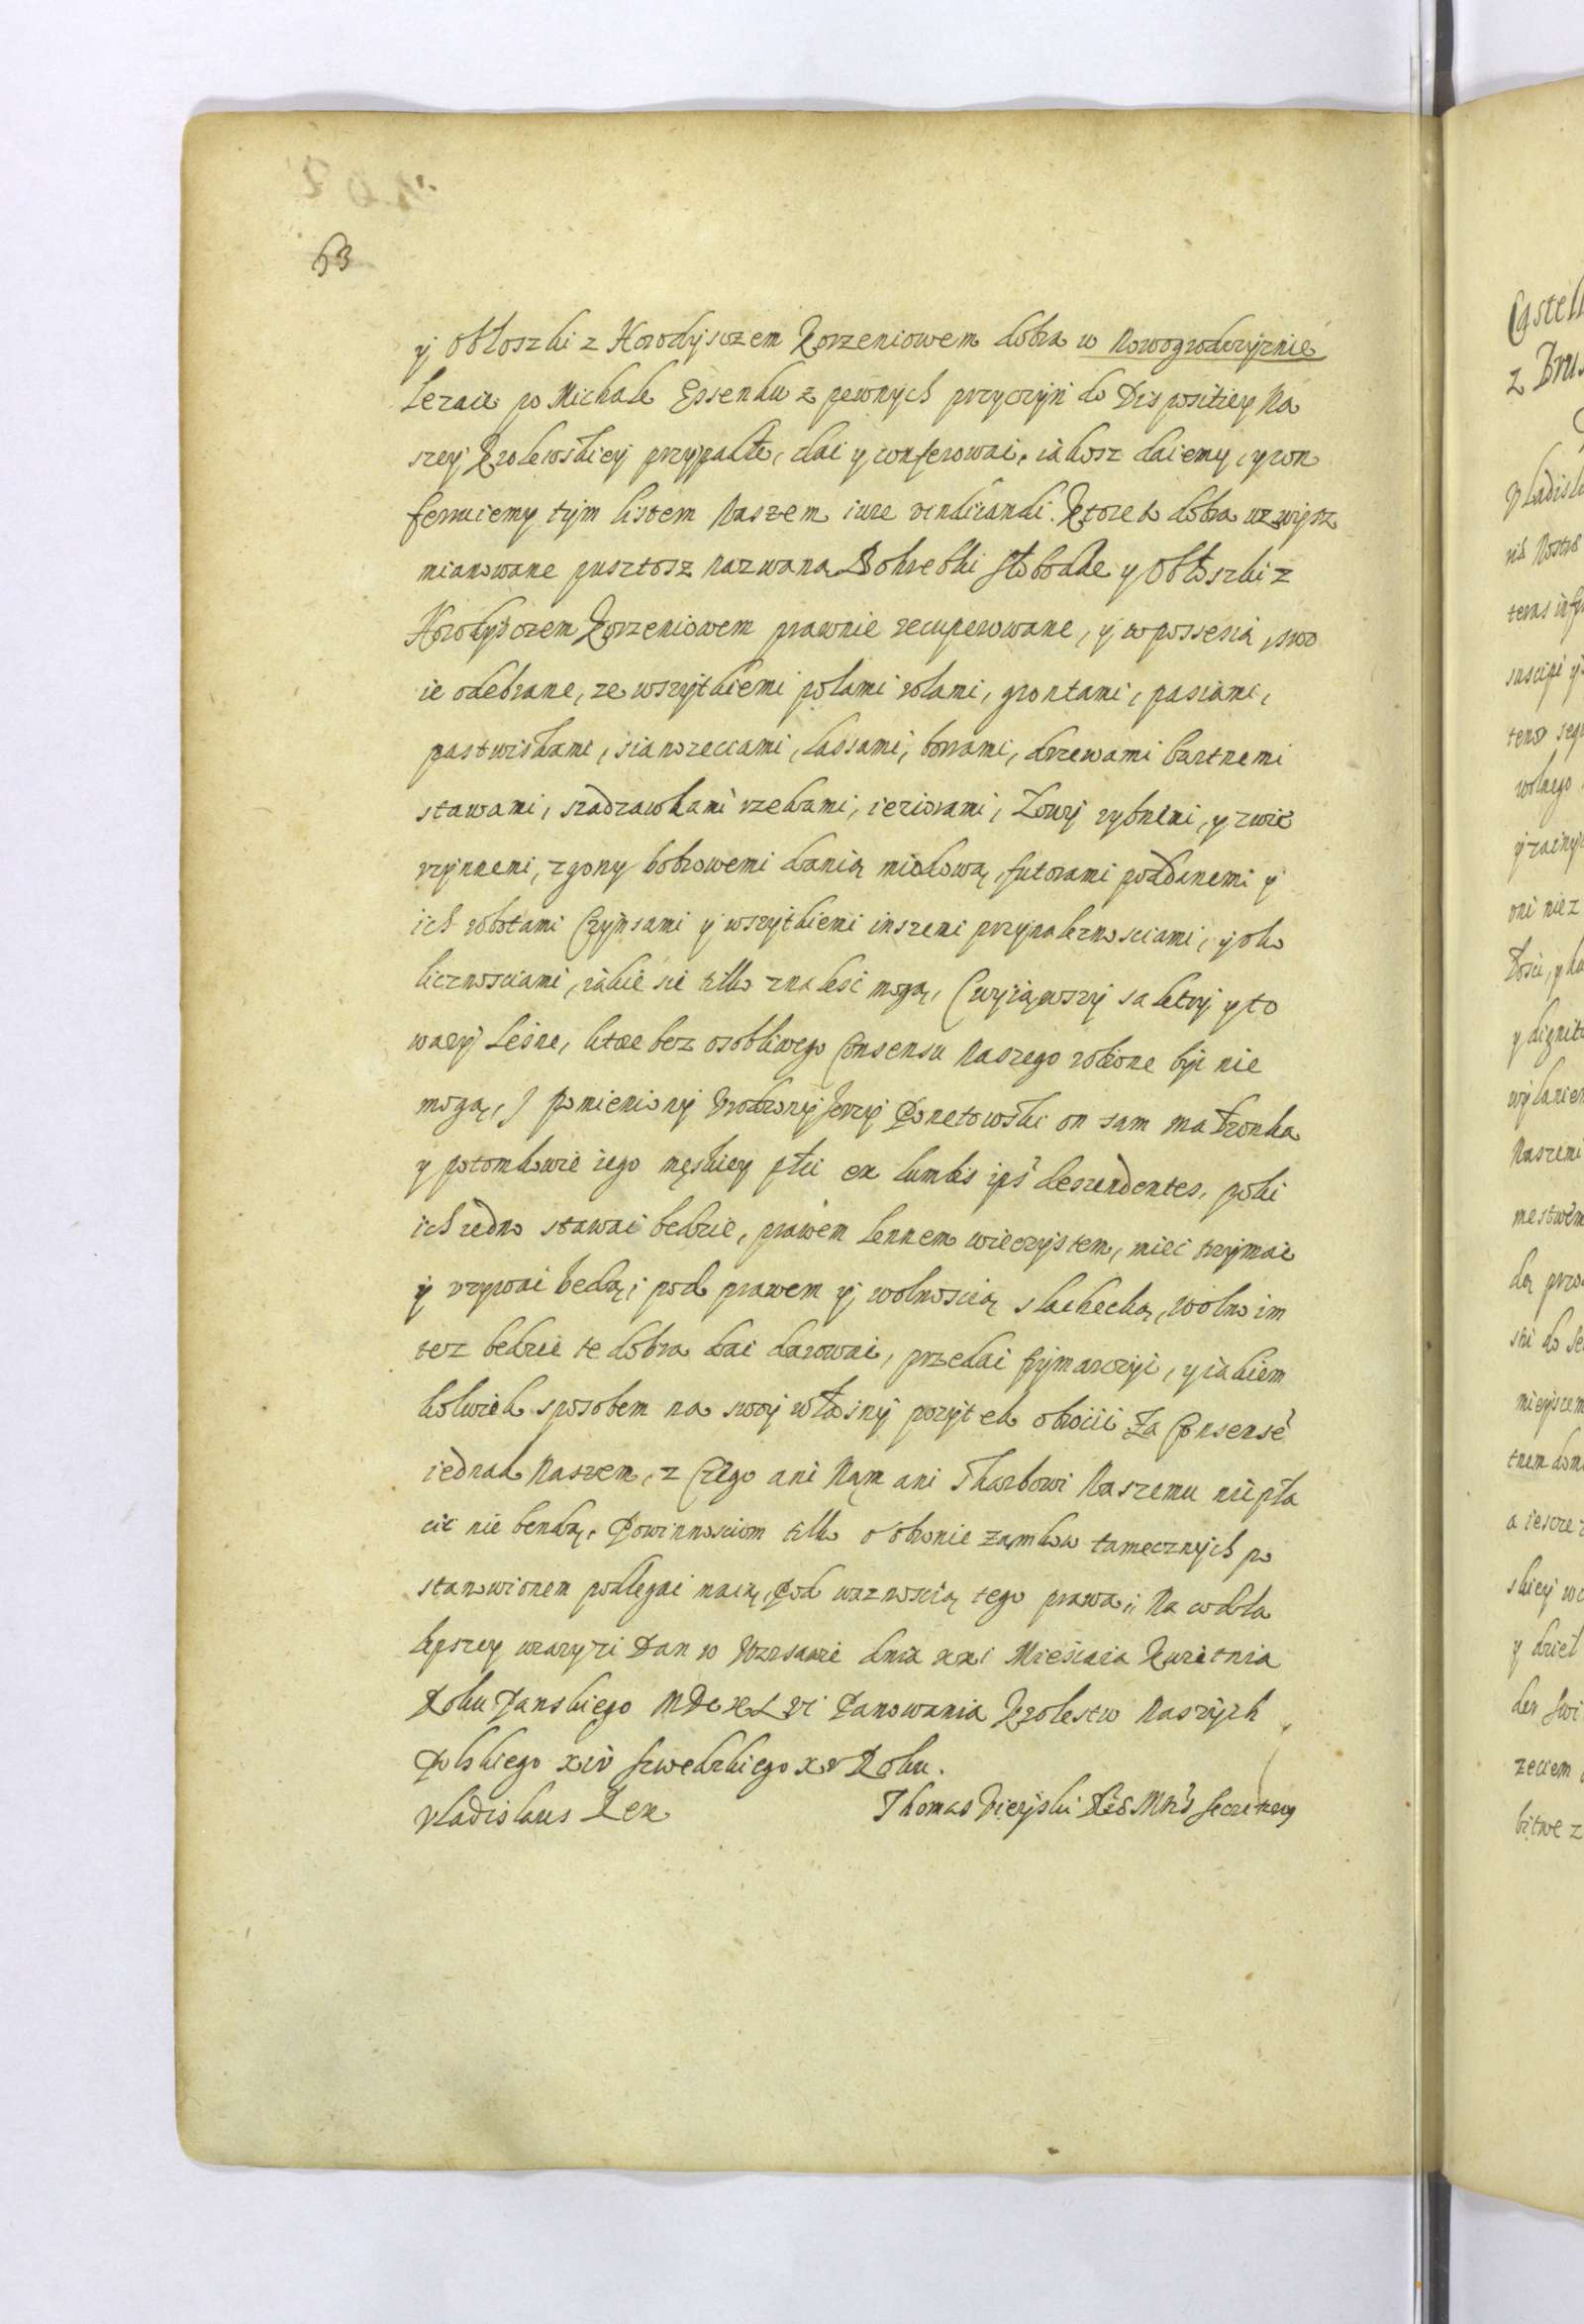 63
y Obłoszki z Horodysczem Korzeniowem dobra w Nowogrodczyznie
Lezace po Michale Essenku z pewnych przyczyn do Dispositiey Na
szey Krolewskiey przypadłe, dac y conferowac, iakosz daiemy, y con
feruiemy tym listem Naszem iure vendicandi. Ktore to dobra wzwysz
mianowane pusztosz nazwana Dohrebki Słobodke y Obłoszki z
Horodysczem Korzeniowem prawnie recuperowane, y w possesią swo
ie odebrane, ze wszytkiemi polami rolami, grontami, pasiami,
pastwiskami, sianozeciami, lassami, borrami, drzewami bartnemi
stawami, szadzawkami rzekami, ieziorami, Łowy rybnemi, y zwie
rzynnemi, zgony bobrowemi danią miodową, futorami poddanemi y
ich robotami Czynsami y wszytkiemi inszemi przynaleznosciami, y oko
licznosciami, iakie sie tilko znalesc mogą, (wyiąwszy saletry y to
wary Leśne, ktore bez osobliwego Consensu Naszego robione byc nie
mogą,) pomieniony Urodzony Jerzy Ponetowski on sam małzonka
y potomkowie iego męskiey płci ex lumbis ips descendentes, poki
ich iedno stawac bedzie, prawem Lennem wieczystem, miec trzymac
y vzywac bedą, pod prawem y wolnoscią slachecką, wolno im
tesz bedzie te dobra dac darowac, przedac frymarczyc, y iakiem
kolwiek sposobem na swoy własny pozytek obrocic Za Consense
iednak Naszem, z Czego ani Nąm ani Skarbowi Naszemu nic pła
cic nie bendą. Powinnosciom tilko o obronie zamkow tamecznych po
stanowionem podlegac maią, Pod waznoscią tego prawa, Na co dla
lepszey wary zi Dan w Warsawie dnia xxi Miesiaca Kwietnia
Roku Panskiego MDCXLVI Panowania Krolestw Naszych
Polskiego xiv szwedzkiego xv Roku.
Vladislaus Rex Thomas Vieyski Mtis Secretary